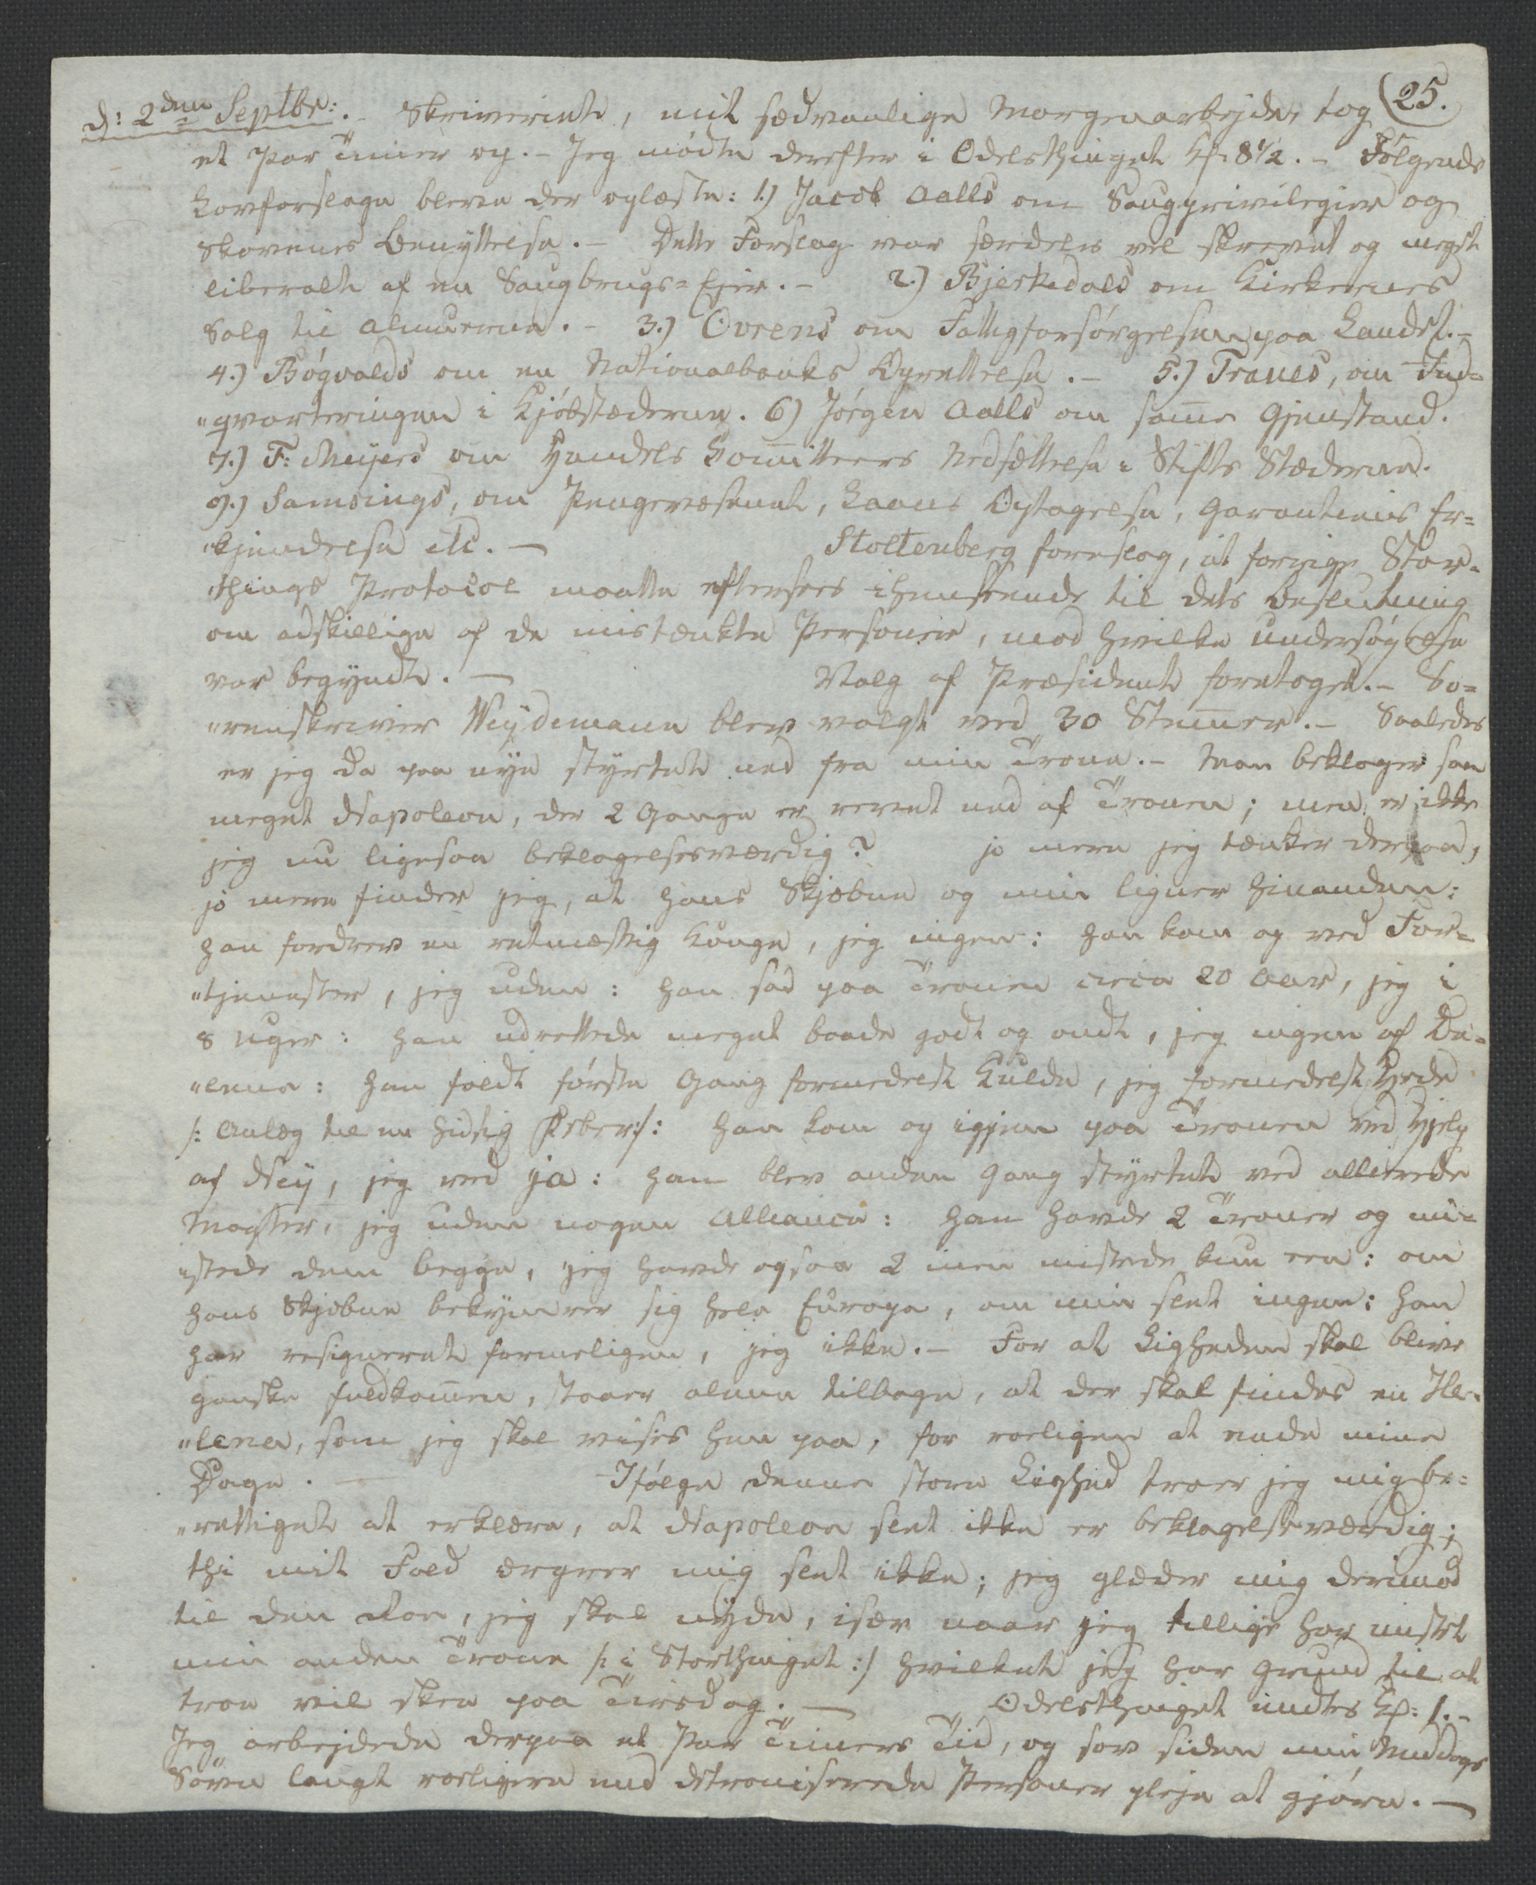 25.
d: 2den Septbr: - Skriveriet, mit sædvaalige Morgenarbejde, tog
et Par Timer op. - Jeg mødte derefter i Odelsthinget Kl. 8 1/2. - Følgende
Lovforslage bleve der oplæste: 1.) Jacob Aalls om Saugprivilegier og
Skovenes Benyttelse. - Dette Forslag var særdeles vel skrevet og meget
liberalt af en Saugbrugs=Ejer. - 2.) Bjerkedals om Kirkernes
Salg til Almuerne. - 3.) Ovrens om Fattigforsørgelsen paa Landet. -
4.) Bøgvalds om en Nationalbanks Oprettelse. - 5.) Tranes, om Ind=
"qvarteringen i Kjøbstæderne. 6) Jørgen Aalls om samme Gjenstand.
7.) F: Meyers om Handels Committeers Nedsættelse i Stifts Stæderne.
9.) Samsings, om Pengevæsenet, Laans Optagelse, Garantiens Er=
"kjendelse etc. - Stoltenberg foreslog, at forrige Stor=
"things Protocol maatte eftersees ihenseende til dets Beslutning
om adskillige af de mistænkte Personer, mod hvilke Undersøgelse
var begyndt. - Valg af Præsident foretoges. - So=
"renskriver Weydemann blev valgt ved 30 Stemmer. - Saaledes
er jeg da paa nye styrtet ned fra min Trone. - Man beklager saa
meget Napoleon, der 2 Gange er revet ned af Tronen; men er ikke
jeg nu ligesaa beklagelsesværdig? jo mere jeg tænker derpaa,
jo mere finder jeg, at hans Skjebne og min ligner hinanden:
han fordrev en retmæssig Konge, jeg ingen: han kom op ved For=
"tjenester, jeg uden: han sad paa Tronen circa 20 Aar, jeg i
8 Uger: han udrettede meget baade godt og ondt, jeg ingen af De=
"lene: han faldt første Gang formedelst Kulde, jeg formedelst Hede
/: Anlæg til en hidsig Feber :/: han kom op igjen paa Tronen ved Hjelp
af Ney, jeg ved ja: han blev anden Gang styrtet ved allierede
Magter, jeg uden nogen Alliance: han havde 2 Troner og mi=
"stede dem begge, jeg havde ogsaa 2 men mistede kun een: om
hans Skjebne bekymrer sig hele Europa, om min slet ingen: han
har resigneret formeligen, jeg ikke. - For at Ligheden skal blive
ganske fuldkommen, staaer alene tilbage, at der skal findes en He=
"lena, som jeg skal vises hen paa, for roeligen at ende mine
Dage. - Ifølge denne store Lighed troer jeg mig be=
"rettiget at erklære, at Napoleon slet ikke er beklagelsesværdig;
thi mit Fald ærgrer mig slet ikke; jeg glæder mig derimod
til den Roe, jeg skal nyde, især naar jeg tillige har mistet
min anden Trone /: i Storthinget :/ hvilket jeg har Grund til at
troe vil skee paa Tirsdag. - Odelsthinget endtes Kl: 1. -
Jeg arbejdede derpaa et Par Timers Tid, og sov siden min Middags
Søvn langt roeligere end detroniserede Personer pleje at gjøre. -